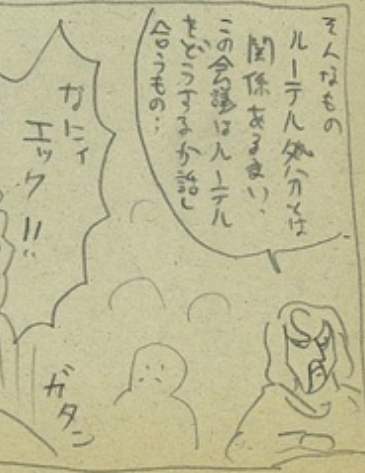 そんなもの
ルーテル処分とは
関係あるまい.
この会議はルーテル
をどうするか話し
合うもの…
なにィ
エック!!
ガタン